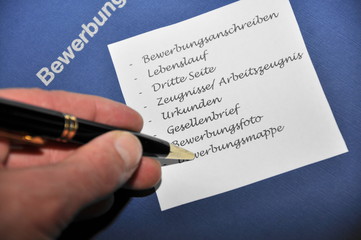 Bewerbung
- Bewerbungsanschreiben
- Lebenslauf
- Dritte Seite
- Zeugnisse/ Arbeitzeugnis
- Urkunden
- Gesellenbrief
- Bewerbungsfoto
werbungsmappe